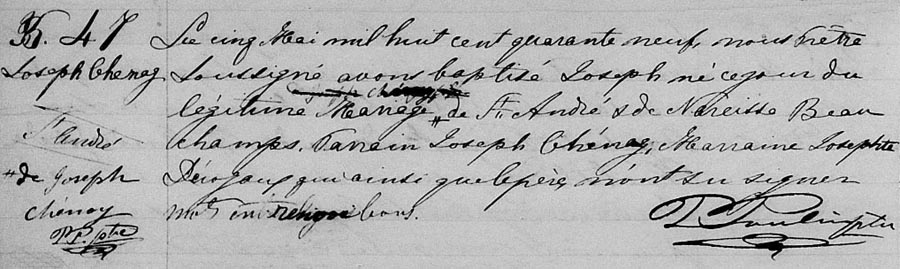 B. 47
Joseph Chénag
St. André
"de Joseph
Chénoy
PP. ptre
Le cinq Mai mil huit cent quarante neuf, nous Prêtre
Soussigné avons baptisé Joseph né ce jour du
légitime Mariage " de St. André & de Narcisse Beau
champs. Parrain Joseph Chénag, Marraine Josephte
qui ainsi que le père, n'ont su signer
mots bons.
P. Poulin ptre